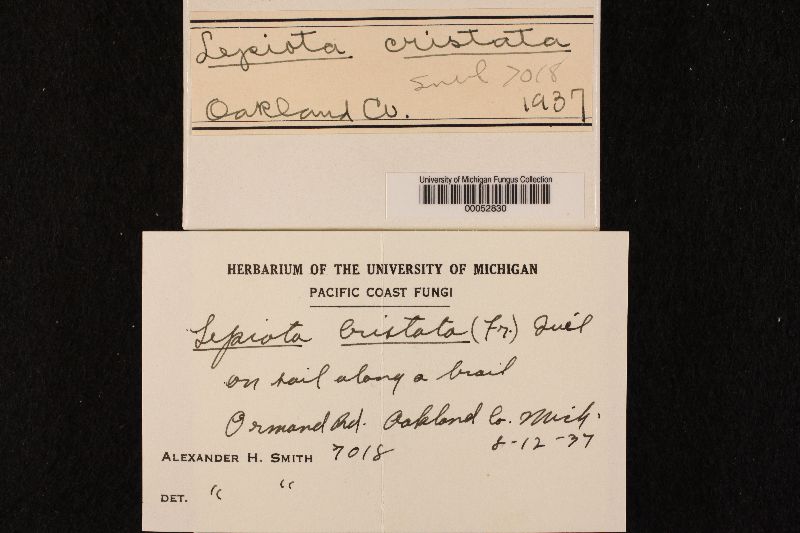 Lepiota cristata
Smith 7018
Oakland Co. 1937
University of Michigan Fungus Collection
00052830
HERBARIUM OF THE UNIVERSITY OF MICHIGAN
PACIFIC COAST FUNGI
Lepiota cristata (Fr.) Quél
on soil along a trail
Ormand Rd. Oakland Co. Mich.
8-12-37
ALEXANDER H. SMITH 7018
DET. " "